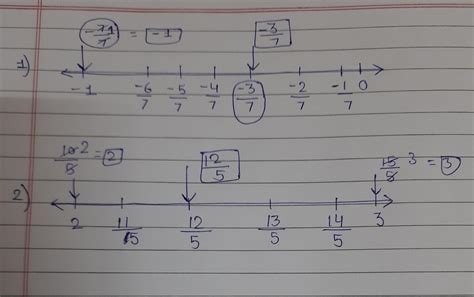 -7/7 = -1   -3/7
1)
-1   -6/7   -5/7   -4/7   -3/7   -2/7   -1/7   0
10/5 2 = 2   12/5   15/5 3 = 3
2)
2   11/5   12/5   13/5   14/5   3